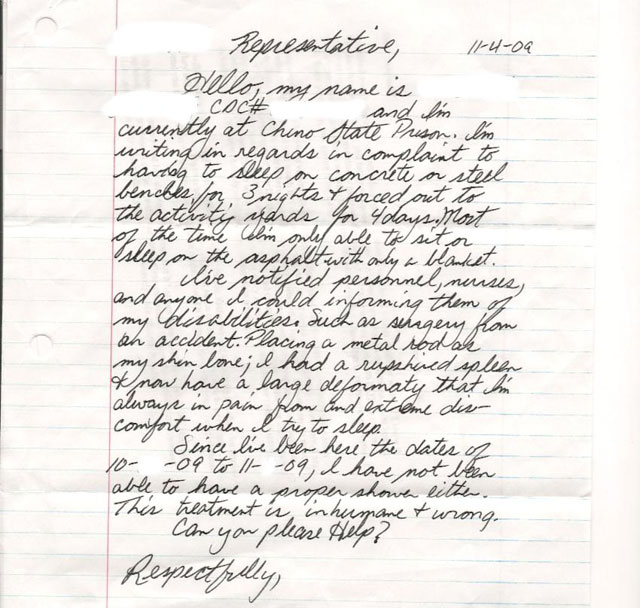 Representative, 11-4-09
Hello, my name is
CDC# and I'm
currently at Chino State Prison. I'm
writing in regards in complaint to
having to sleep on concrete or steel
benches, for 3 nights & forced out to
the activity yards for 4 days. Most
of the time I'm only able to sit or
sleep on the asphalt with only a blanket.
I've notified personnel, nurses,
and anyone I could informing them of
my disabilities. Such as seragery from
an accident. Placing a metal rod as
my shin bone; I had a rupshired spleen
& now have a large deformaty that I'm
always in pain from and extreme dis-
comfort when I try to sleep.
Since I've been here, the dates of
10- -09 to 11- -09, I have not been
able to have a proper shower either.
This treatment is inhumane & wrong.
Can you please Help?
Respectfully,